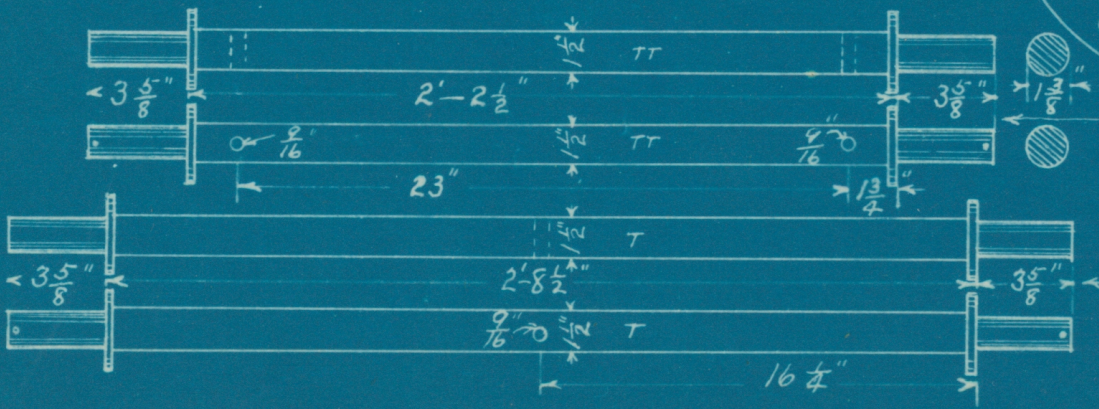 1 1/2" TT
3 5/8" 2'-2 1/2" 3 5/8" 1 3/8"
9/16" 1 1/2" TT 9/16"
23" 1 3/4"
1 1/2" T
3 5/8" 2'-8 1/2" 3 5/8"
9/16" 1 1/2" T
16 1/4"